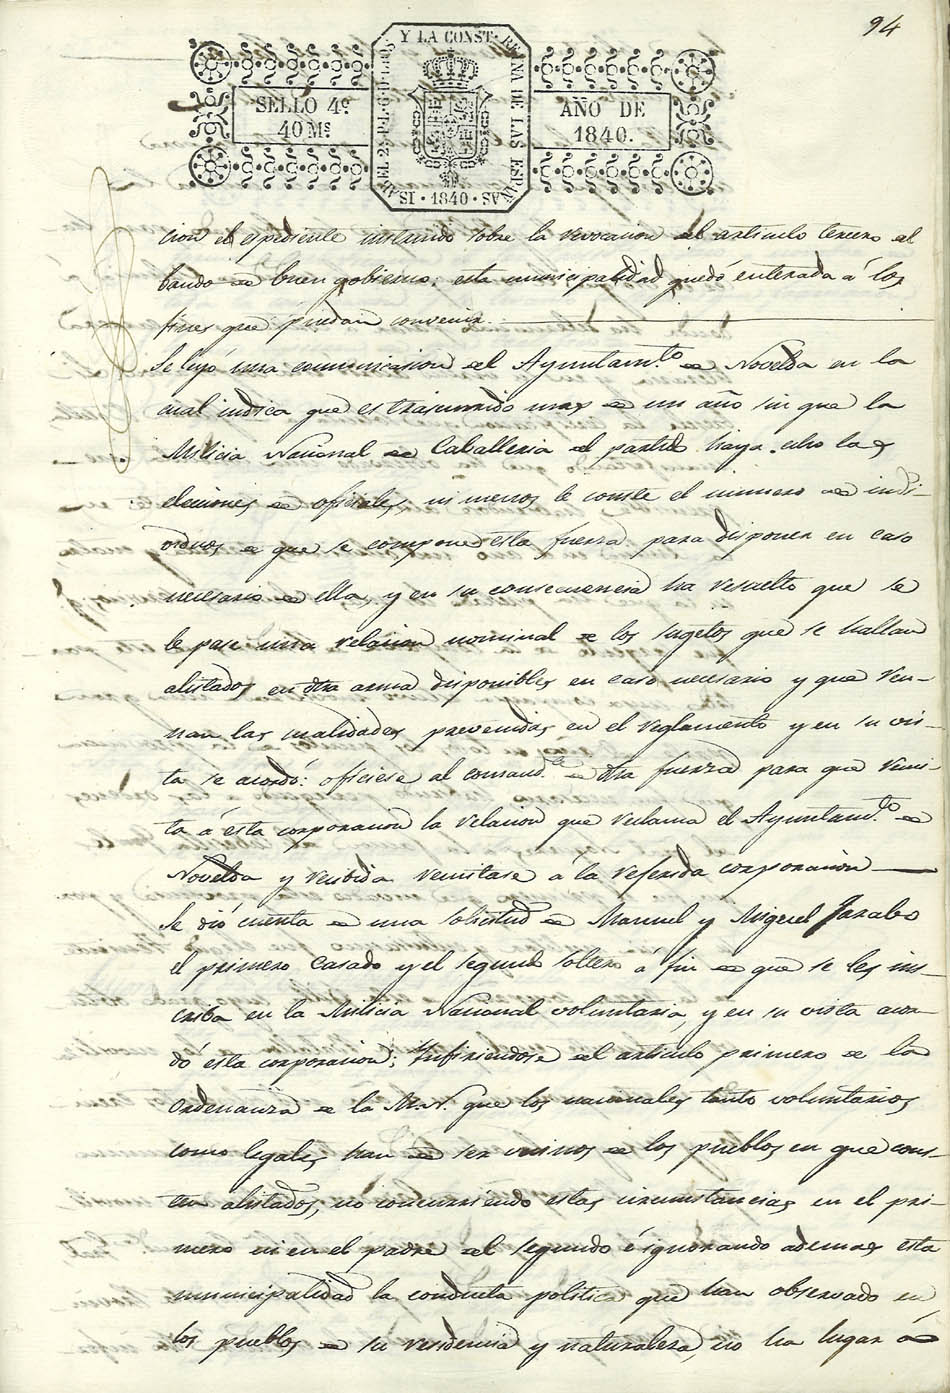 94
Y LA CONST. REYNA DE LAS ESPAÑAS
ISABEL 2ª P. L. G. D. DIOS
SELLO 4º
40 Mˢ
AÑO DE
1840.
· 1840 ·
cion el espediente instruido sobre la revocacion del articulo tercero del
bando de buen gobierno: esta municipalidad quedó enterada á los
fines que puedan convenir.
Se leyó una comunicacion del Ayuntam.to de Novelda en la
cual indica que es trascurrido mas de un año sin que la
Milicia Nacional de Caballeria del partido haya echo las
elecciones de oficiales, ni menos le conste el numero de indi-
viduos de que se compone esta fuerza para disponer en caso
necesario de ella, y en su consecuencia ha resuelto que se
le pase una relacion nominal de los sugetos que se hallan
alistados en dha arma disponibles en caso necesario y que reu-
nan las cualidades prevenidas en el reglamento y en su vis-
ta se acordó: oficiese al comand.te de dha fuerza para que remi-
ta á esta corporacion la relacion que reclama el Ayuntam.to de
Novelda y recibida remitase á la referida corporacion
Se dió cuenta de una solicitud de Manuel y Miguel
el primero casado y el segundo soltero á fin de que se les ins-
criba en la Milicia Nacional voluntaria, y en su vista acor-
dó esta corporacion: Infiriendose del articulo primero de la
Ordenanza de la M. N. que los nacionales tanto voluntarios
como legales han de ser vecinos de los pueblos en que cons-
ten alistados, no concurriendo estas circunstancias en el pri-
mero ni en el padre del segundo é ignorando ademas esta
municipalidad la conducta politica que han observado en
los pueblos de su residencia y naturaleza, no ha lugar á